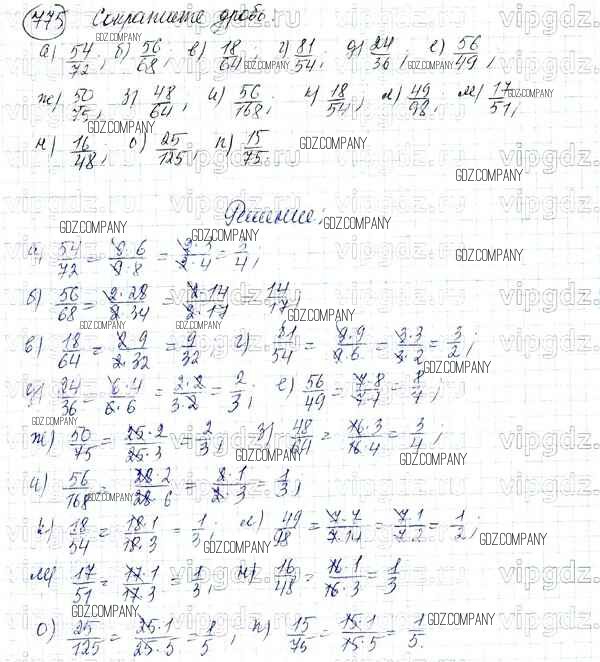 775 Сократите дробь.
а) 54/72; б) 56/68; в) 18/64; г) 81/54; д) 24/36; е) 56/49;
ж) 50/75; з) 48/64; и) 56/168; к) 18/54; л) 49/98; м) 17/51;
н) 16/48; о) 25/125; п) 15/75
Решение:
а) 54/72 = 9·6/9·8 = 2·3/2·4 = 3/4;
б) 56/68 = 2·28/2·34 = 2·14/2·17 = 14/17;
в) 18/64 = 2·9/2·32 = 9/32; г) 81/54 = 9·9/9·6 = 3·3/3·2 = 3/2;
д) 24/36 = 6·4/6·6 = 2·2/3·2 = 2/3; е) 56/49 = 7·8/7·7 = 8/7;
ж) 50/75 = 25·2/25·3 = 2/3; з) 48/64 = 16·3/16·4 = 3/4;
и) 56/168 = 28·2/28·6 = 2·1/2·3 = 1/3;
к) 18/54 = 18·1/18·3 = 1/3; л) 49/98 = 7·7/7·14 = 7·1/7·2 = 1/2;
м) 17/51 = 17·1/17·3 = 1/3; н) 16/48 = 16·1/16·3 = 1/3
о) 25/125 = 25·1/25·5 = 1/5; п) 15/75 = 15·1/15·5 = 1/5.
GDZ.COMPANY
vipgdz.com